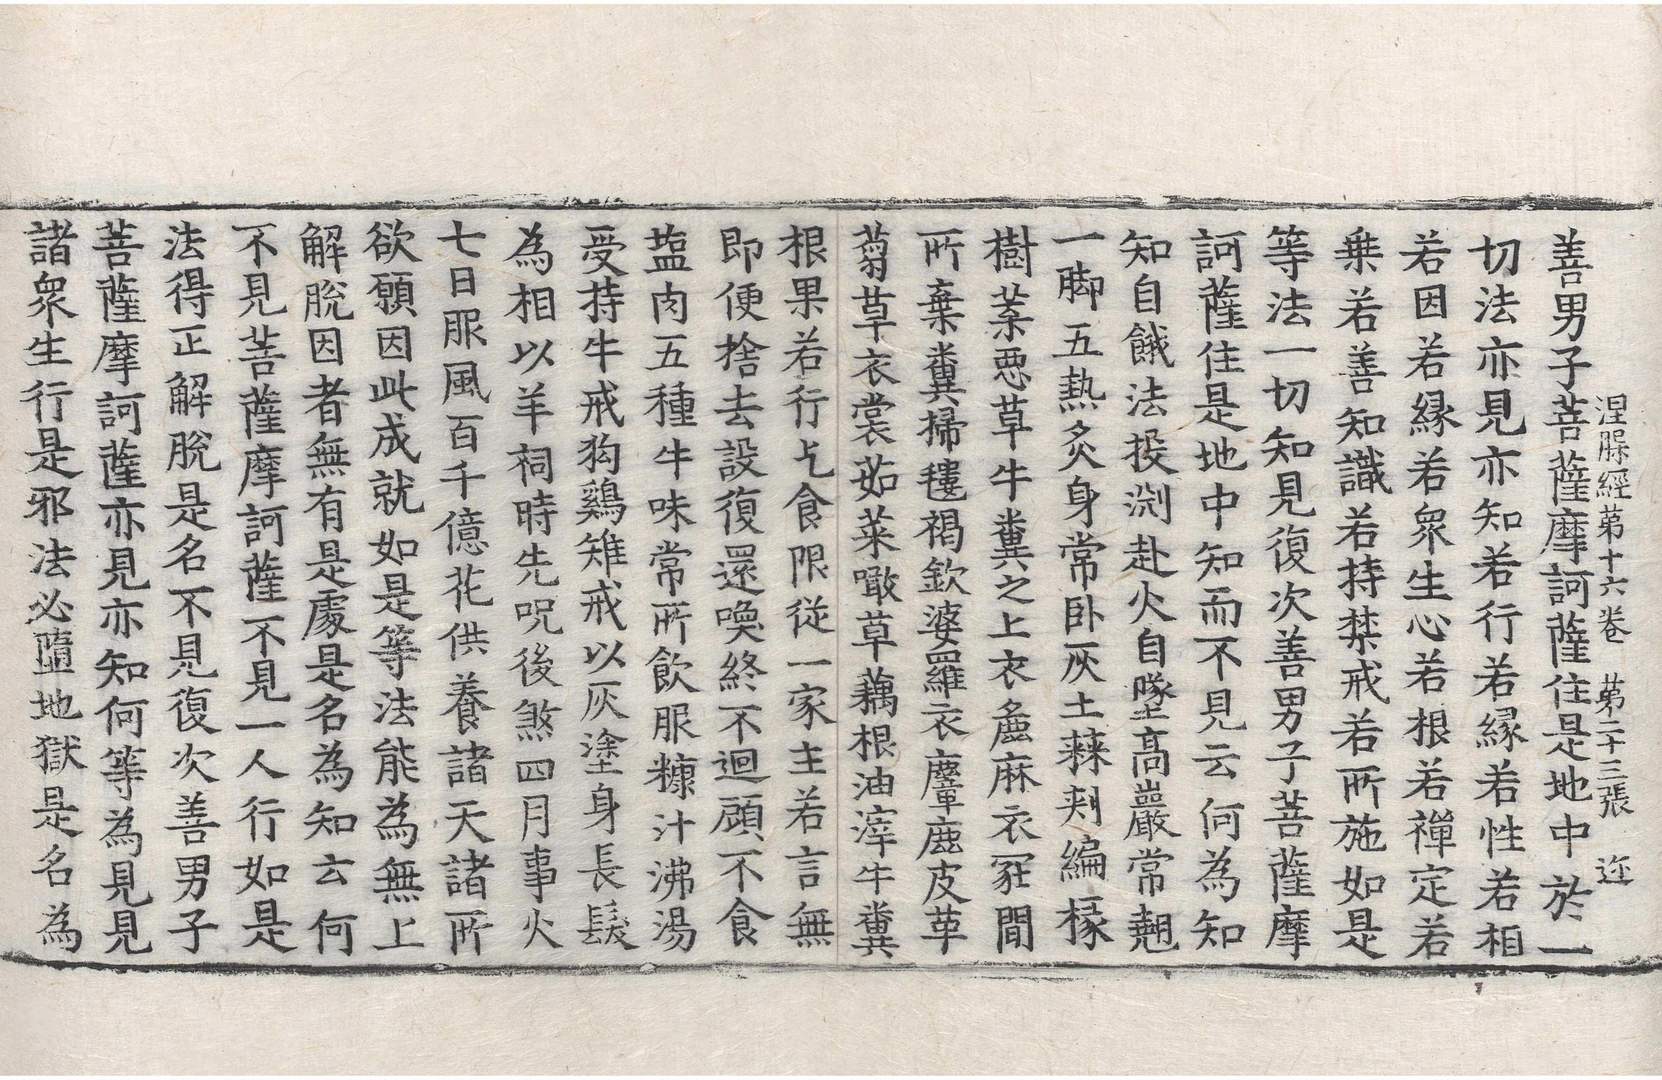 涅槃經第十六卷　第二十三張　迩
善男子菩薩摩訶薩住是地中於一
切法亦見亦知若行若緣若性若相
若因若緣若衆生心若根若禪定若
乗若善知識若持禁戒若所施如是
等法一切知見復次善男子菩薩摩
訶薩住是地中知而不見云何為知
知自餓法投渕赴火自墜高巖常翹
一脚五熱炙身常卧灰土棘刾編椽
樹葉惡草牛糞之上衣麁麻衣冢間
所棄糞掃氀褐欽婆羅衣麞鹿皮革
蒭草衣裳茹菜噉草藕根油滓牛糞
根果若行乞食限従一家主若言無
即便捨去設復還喚終不迴顧不食
塩肉五種牛味常所飲服糠汁沸湯
受持牛戒狗鷄雉戒以灰塗身長髮
為相以羊祠時先呪後煞四月事火
七日服風百千億花供養諸天諸所
欲願因此成就如是等法能為無上
解脫因者無有是處是名為知云何
不見菩薩摩訶薩不見一人行如是
法得正解脫是名不見復次善男子
菩薩摩訶薩亦見亦知何等為見見
諸衆生行是邪法必墮地獄是名為